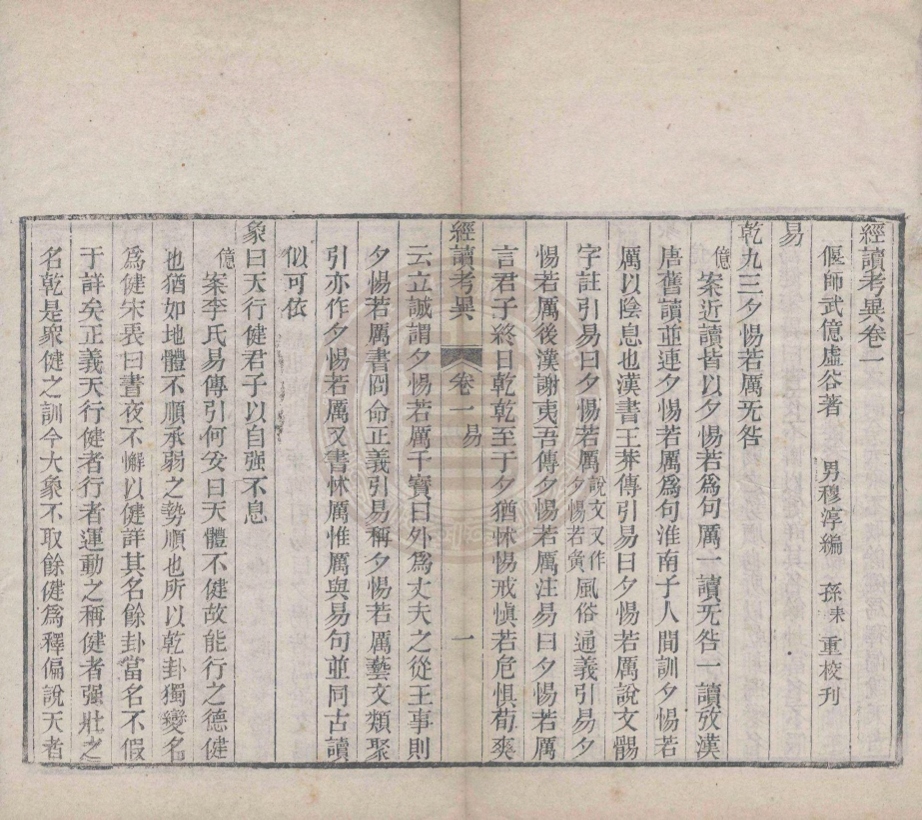 經讀考異卷一
偃師武億虛谷著 男穆淳編 孫耒重校刊
易
乾九三夕惕若厲无咎
億案近讀皆以夕惕若爲句厲一讀无咎一讀攷漢
唐舊讀並連夕惕若厲爲句淮南子人間訓夕惕若
厲以陰息也漢書王莽傳引易曰夕惕若厲說文骪
字註引易曰夕惕若厲說文又作夕惕若夤風俗通義引易夕
惕若厲後漢謝夷吾傳夕惕若厲注易曰夕惕若厲
言君子終日乾乾至于夕猶怵惕戒愼若危懼荀爽
經讀考異 卷一 易 一
云立誠謂夕惕若厲干寶曰外爲丈夫之從王事則
夕惕若厲書冏命正義引易稱夕惕若厲藝文類聚
引亦作夕惕若厲又書怵厲惟厲與易句並同古讀
似可依
象曰天行健君子以自强不息
億案李氏易傳引何妥曰天體不健故能行之德健
也猶如地體不順承弱之勢順也所以乾卦獨變名
爲健宋衷曰晝夜不懈以健詳其名餘卦當名不假
于詳矣正義天行健者行者運動之稱健者强壯之
名乾是衆健之訓今大象不取餘健爲釋偏說天者